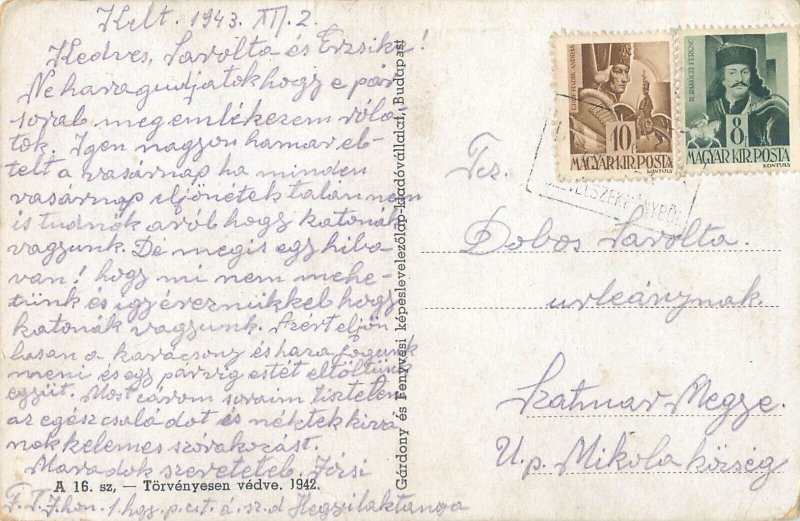 Kelt. 1943. XII. 2.
Kedves, Sarolta és Erzsike!
Ne haragudjatok hogy e pár
sorab megemlékezem róla
tok. Igen nagyon hamar el-
telt a vasárnap ha minden
vasárnap eljönétek talán nem
is tudnók aról hogy katonák
vagyunk. De mégis egy hiba
van! hogy mi nem mehe-
tünk és igy éreznükkel hogy
katonák vagyunk. Azért eljön
lasan a karácsony és haza fogunk
meni és egy pár vig estét eltöltünk
együt. Most zárom soraim tisztelem
az egész családot és néktek kivá
nok kelemes szórakozást.
Maradok szeretetel. Józsi
A 16. sz, — Törvényesen védve. 1942.
Hegyilaktanya
Gárdony és Fenyvesi képeslevelezőlap-kiadóvállalat, Budapest
10f
MAGYAR·KIR·POSTA
KONTULY
II. RÁKÓCZI FERENC
8f
MAGYAR·KIR·POSTA
KONTULY
LEVÉLSZEKRÉNYBŐL
Dobos Sarolta.
urleánynak.
Szatmar Megye.
U.p. Mikola község